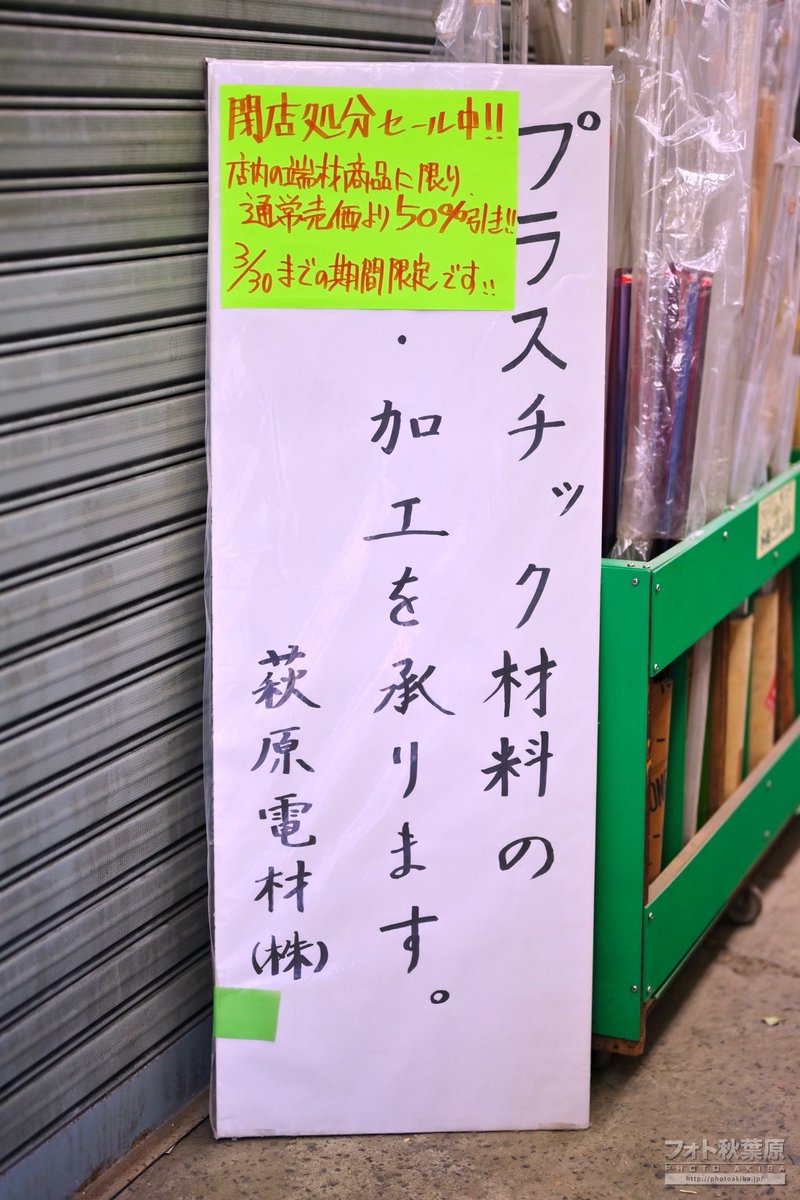 閉店処分セール中!!
店内の端材商品に限り
通常売価より50%引き!!
3/30までの期間限定です!!
プラスチック材料の
・加工を承ります。
萩原電材(株)
フォト秋葉原
PHOTO AKIBA
http://photoakiba.jp/